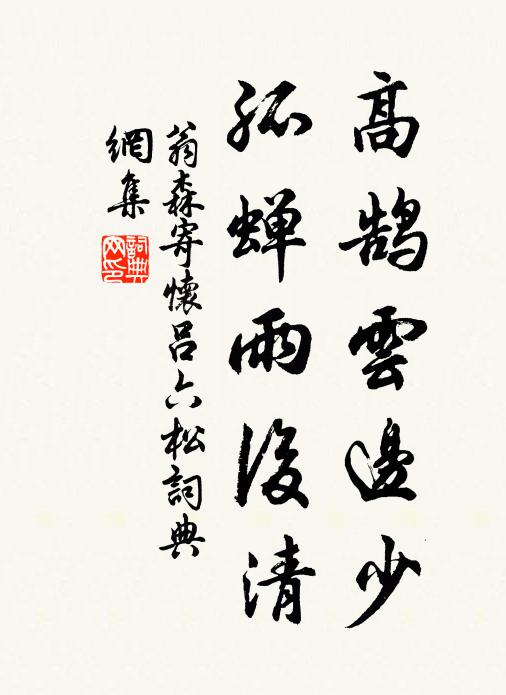 高鹄雲邊少
孤蝉雨後清
翁森寄懷呂六松詞典
網集
詞典網印